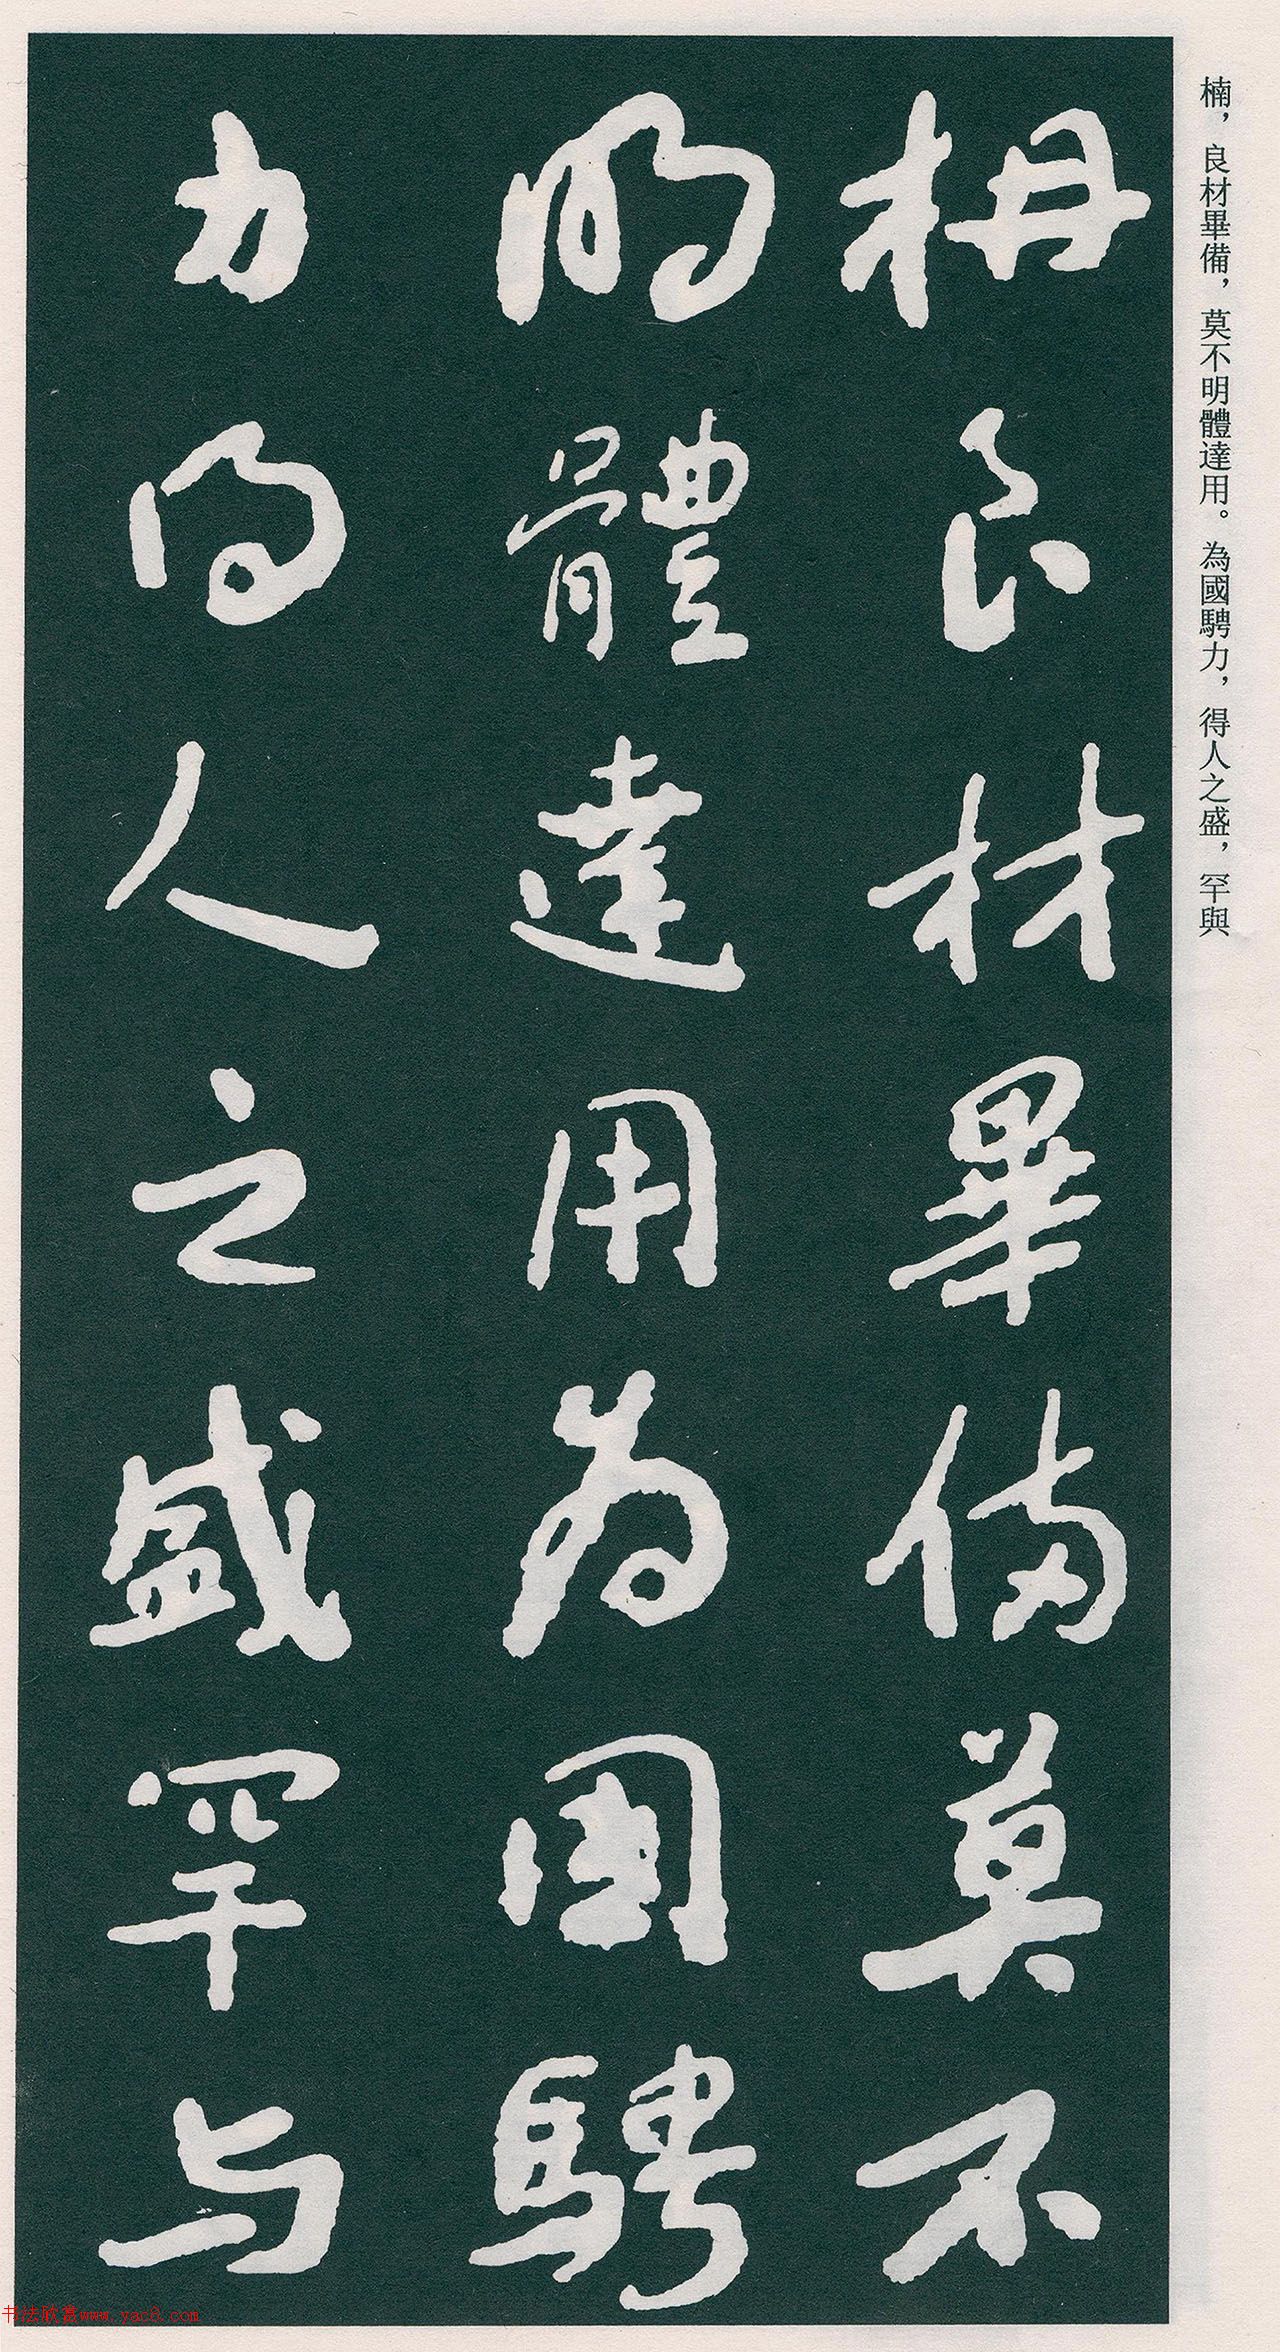 楠，良材畢備，莫不明體達用。為國騁力，得人之盛，罕與
枏良材畢備莫不
明體達用為國騁
力得人之盛罕与
书法欣赏www.yac8.com